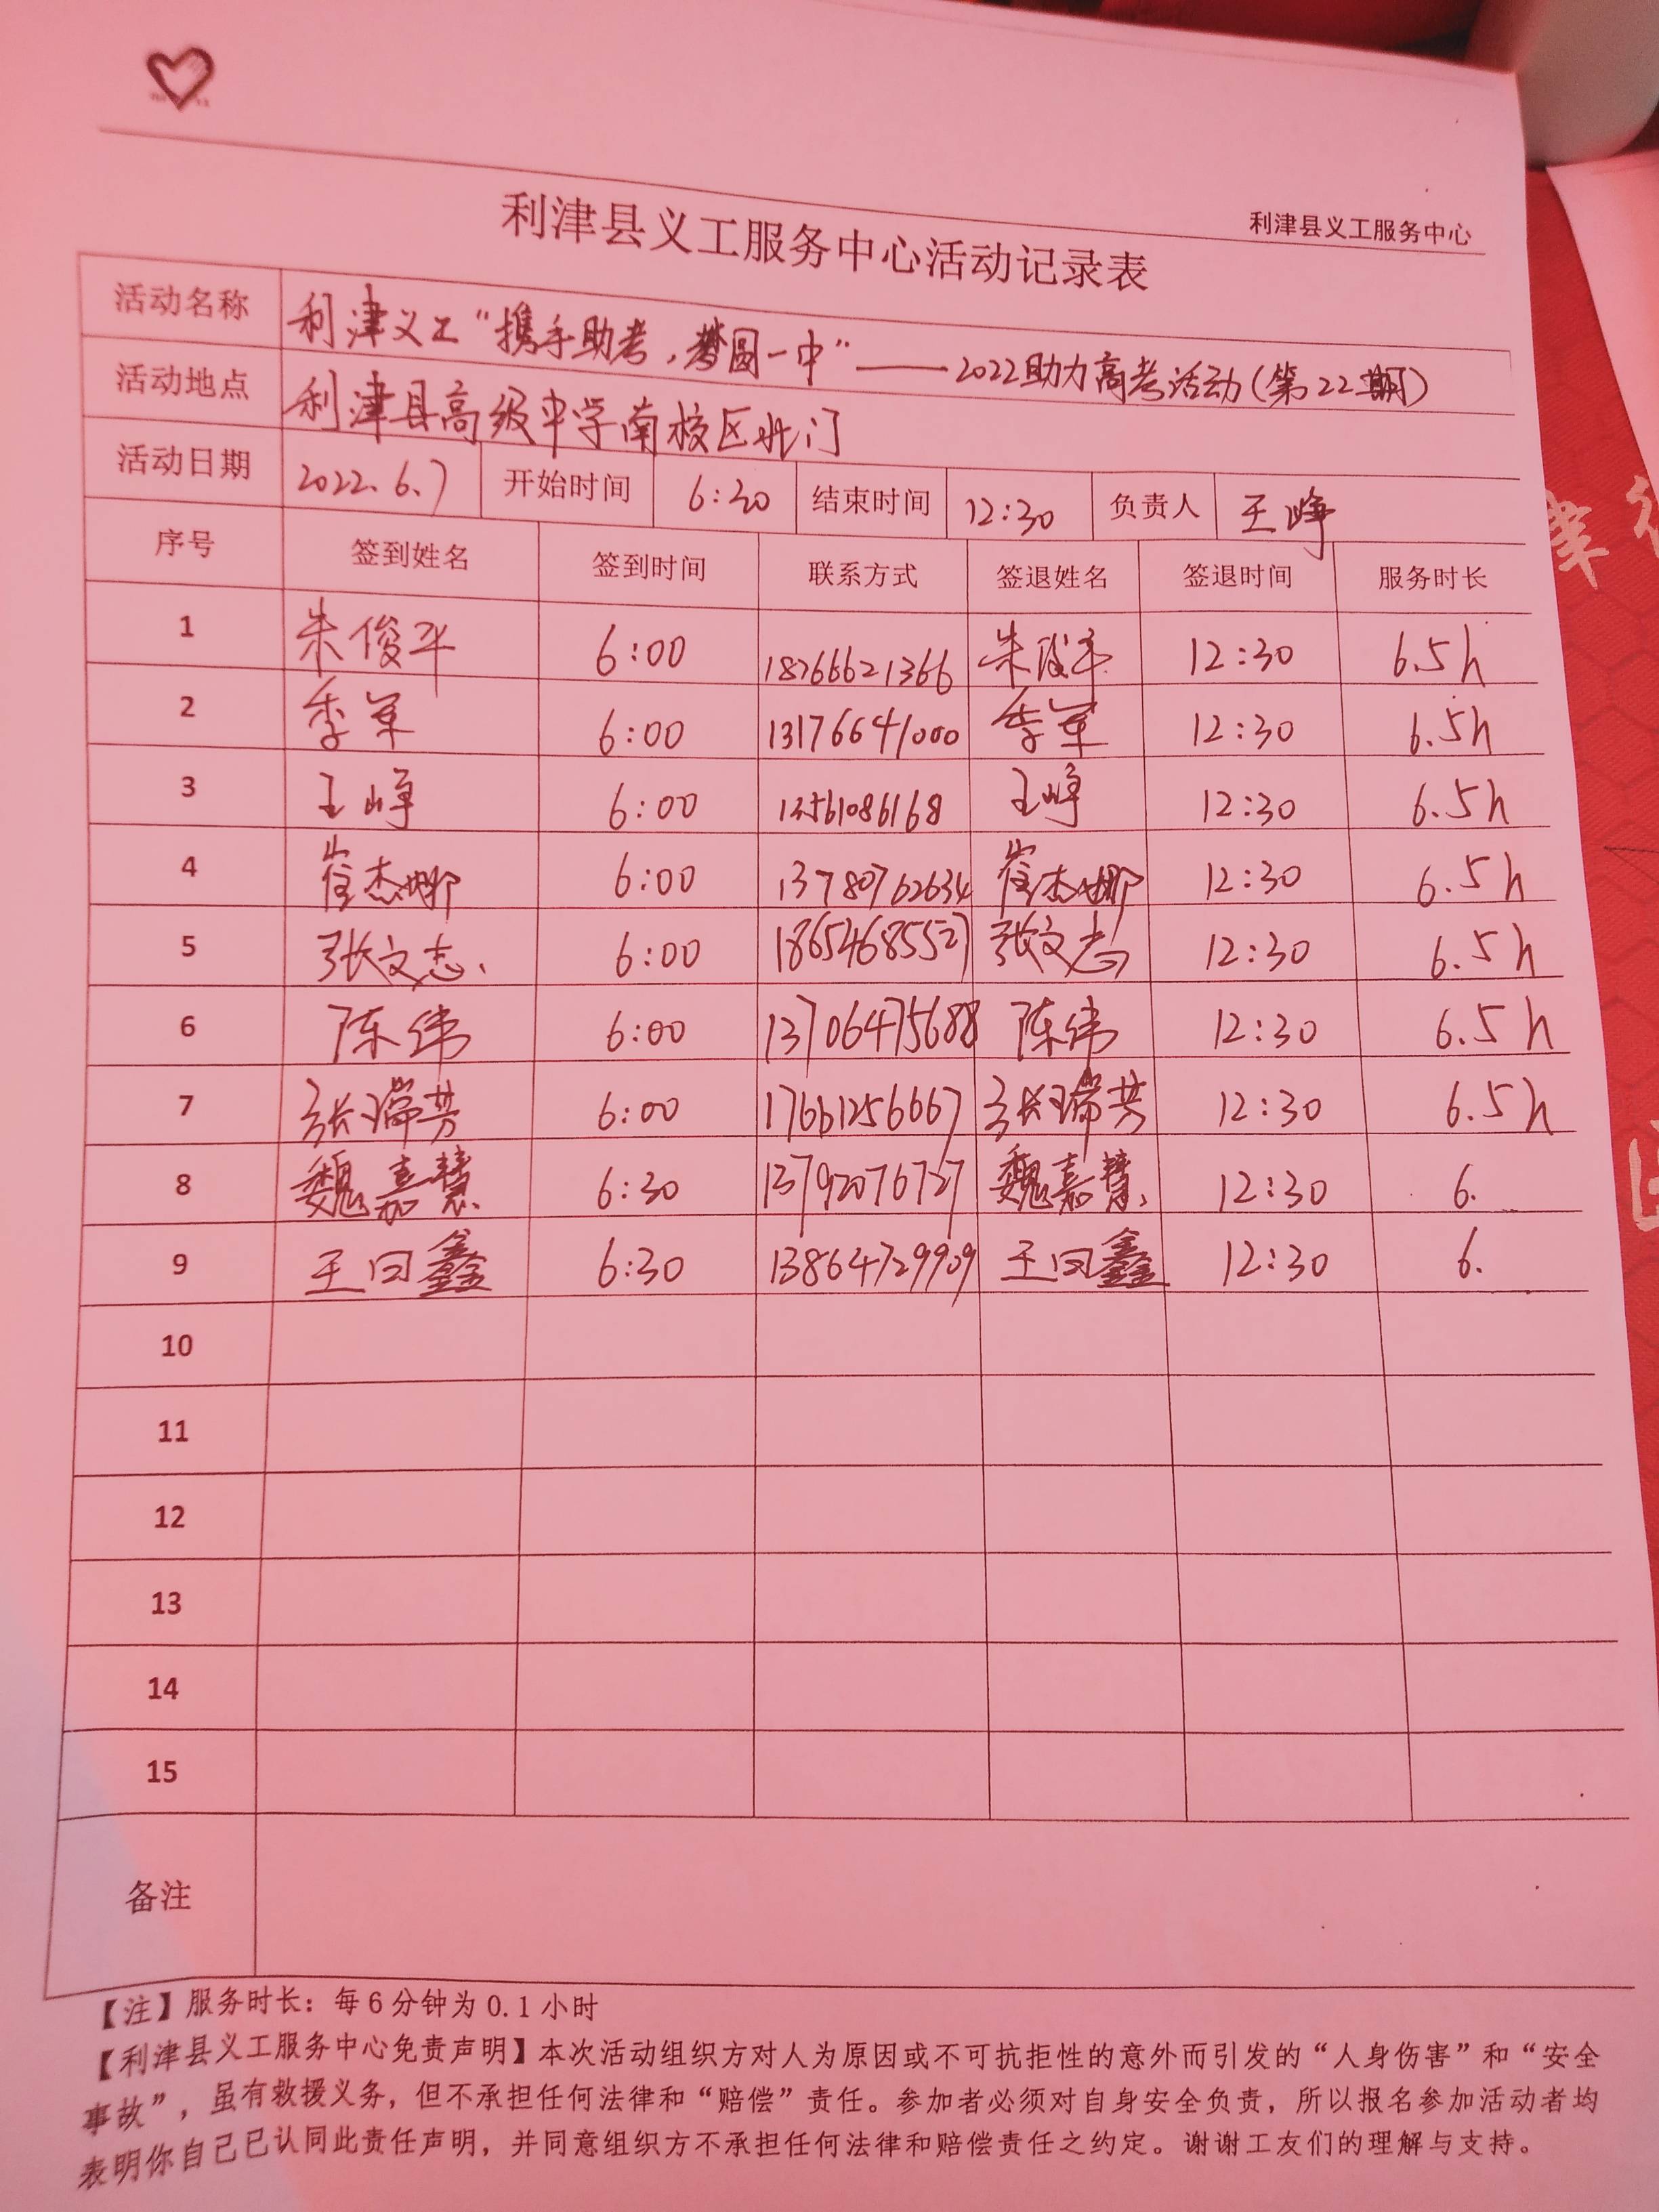 利津县义工服务中心
利津县义工服务中心活动记录表
活动名称 利津义工“携手助考，梦圆一中”——2022助力高考活动(第22期)
活动地点 利津县高级中学南校区北门
活动日期 2022.6.7 开始时间 6:30 结束时间 12:30 负责人 王峥
序号 签到姓名 签到时间 联系方式 签退姓名 签退时间 服务时长
1 朱俊平 6:00 18266621366 朱俊平 12:30 6.5h
2 季军 6:00 13176641000 季军 12:30 6.5h
3 王峥 6:00 13561086168 王峥 12:30 6.5h
4 崔杰娜 6:00 13780762634 崔杰娜 12:30 6.5h
5 张文志 6:00 18654685527 张文志 12:30 6.5h
6 陈伟 6:00 13706475688 陈伟 12:30 6.5h
7 张瑞芳 6:00 17661256667 张瑞芳 12:30 6.5h
8 魏嘉慧 6:30 13792076727 魏嘉慧 12:30 6.
9 王曰鑫 6:30 13864729909 王曰鑫 12:30 6.
10
11
12
13
14
15
备注
【注】服务时长：每6分钟为0.1小时
【利津县义工服务中心免责声明】本次活动组织方对人为原因或不可抗拒性的意外而引发的“人身伤害”和“安全
事故”，虽有救援义务，但不承担任何法律和“赔偿”责任。参加者必须对自身安全负责，所以报名参加活动者均
表明你自己已认同此责任声明，并同意组织方不承担任何法律和赔偿责任之约定。谢谢工友们的理解与支持。